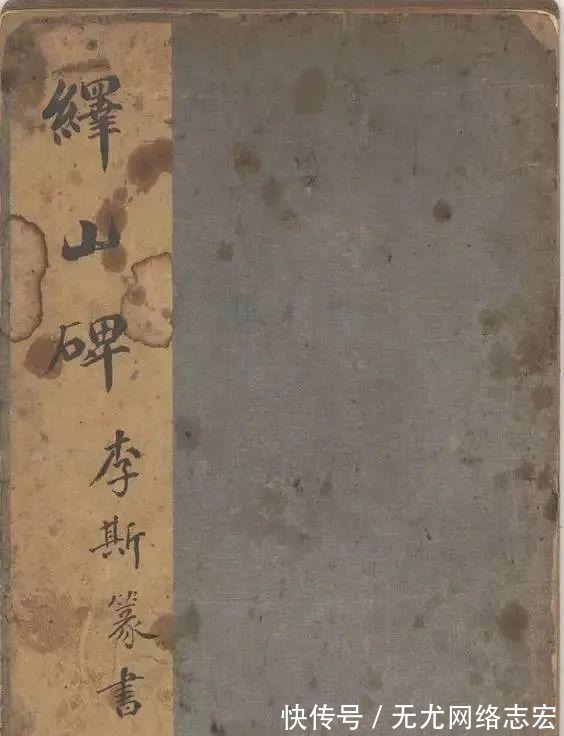 繹山碑
李斯篆書
快传号/无尤网络志宏